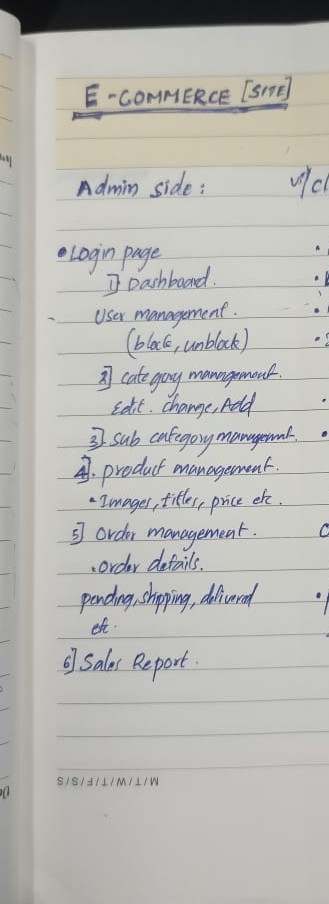 E-COMMERCE [SITE]
Admin side:
• Login page
1] Dashboard.
User management.
(block, unblock)
2] category management.
Edit. change, Add
3] sub category management.
4]. product management.
• Images, titles, price etc.
5] Order management.
• order details.
pending, shipping, delivered
etc.
6] Sales Report.
M/T/W/T/F/S/S